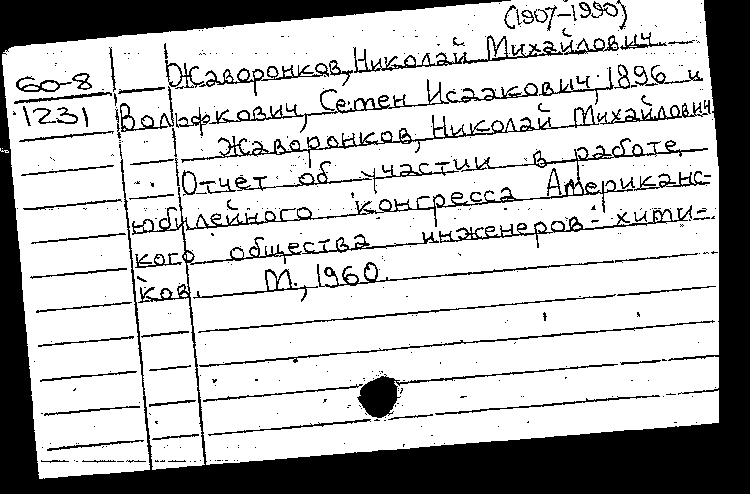 (1907-1990)
60-8 Жаворонков, Николай Михайлович
1231 Вольфкович, Семен Исаакович, 1896 и
Жаворонков, Николай Михайлович.
Отчет об участии в работе
юбилейного конгресса Американс-
кого общества инженеров-хими-
ков. М., 1960.